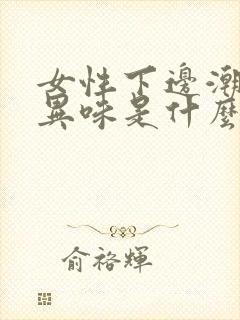 女性下邊潮
異味是什麼
俞裕輝